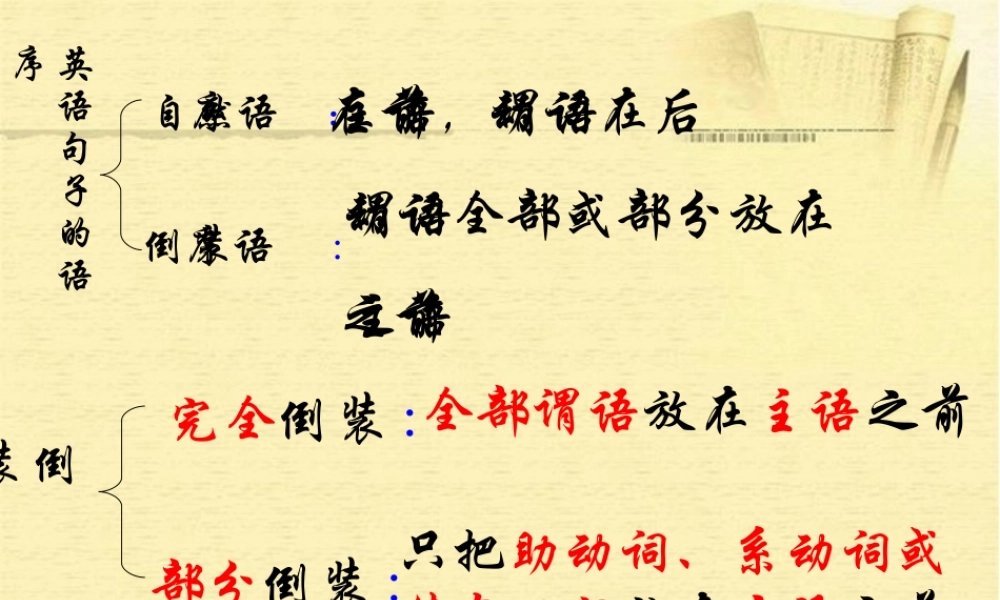 英语句子的语序
自然语序:主语在前，谓语在后
倒装语序:谓语全部或部分放在
主语之前
倒装
完全倒装:全部谓语放在主语之前
部分倒装:只把助动词、系动词或